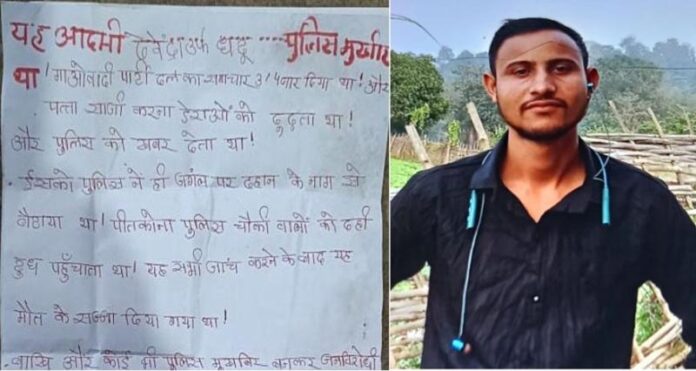 यह आदमी देवेंद्र उर्फ धदू ---- पुलिस मुखबिर
था! माओवादी पार्टी दल का समाचार 3/4 बार दिया था! और
पत्ता साजी करना डेराओं को ढूढता था!
और पुलिस को खबर देता था!
. ईसको पुलिस नें ही जगंल पर दहान के नाम से
बैठाया था! पीतकोना पुलिस चौकी वालों को दही
दुध पहुँचाता था! यह सभी जाचं करने के बाद यह
मौत के सज्जा दिया गया था!
. बाखि और कोई भी पुलिस मुखबिर बनकर जनविरोधी